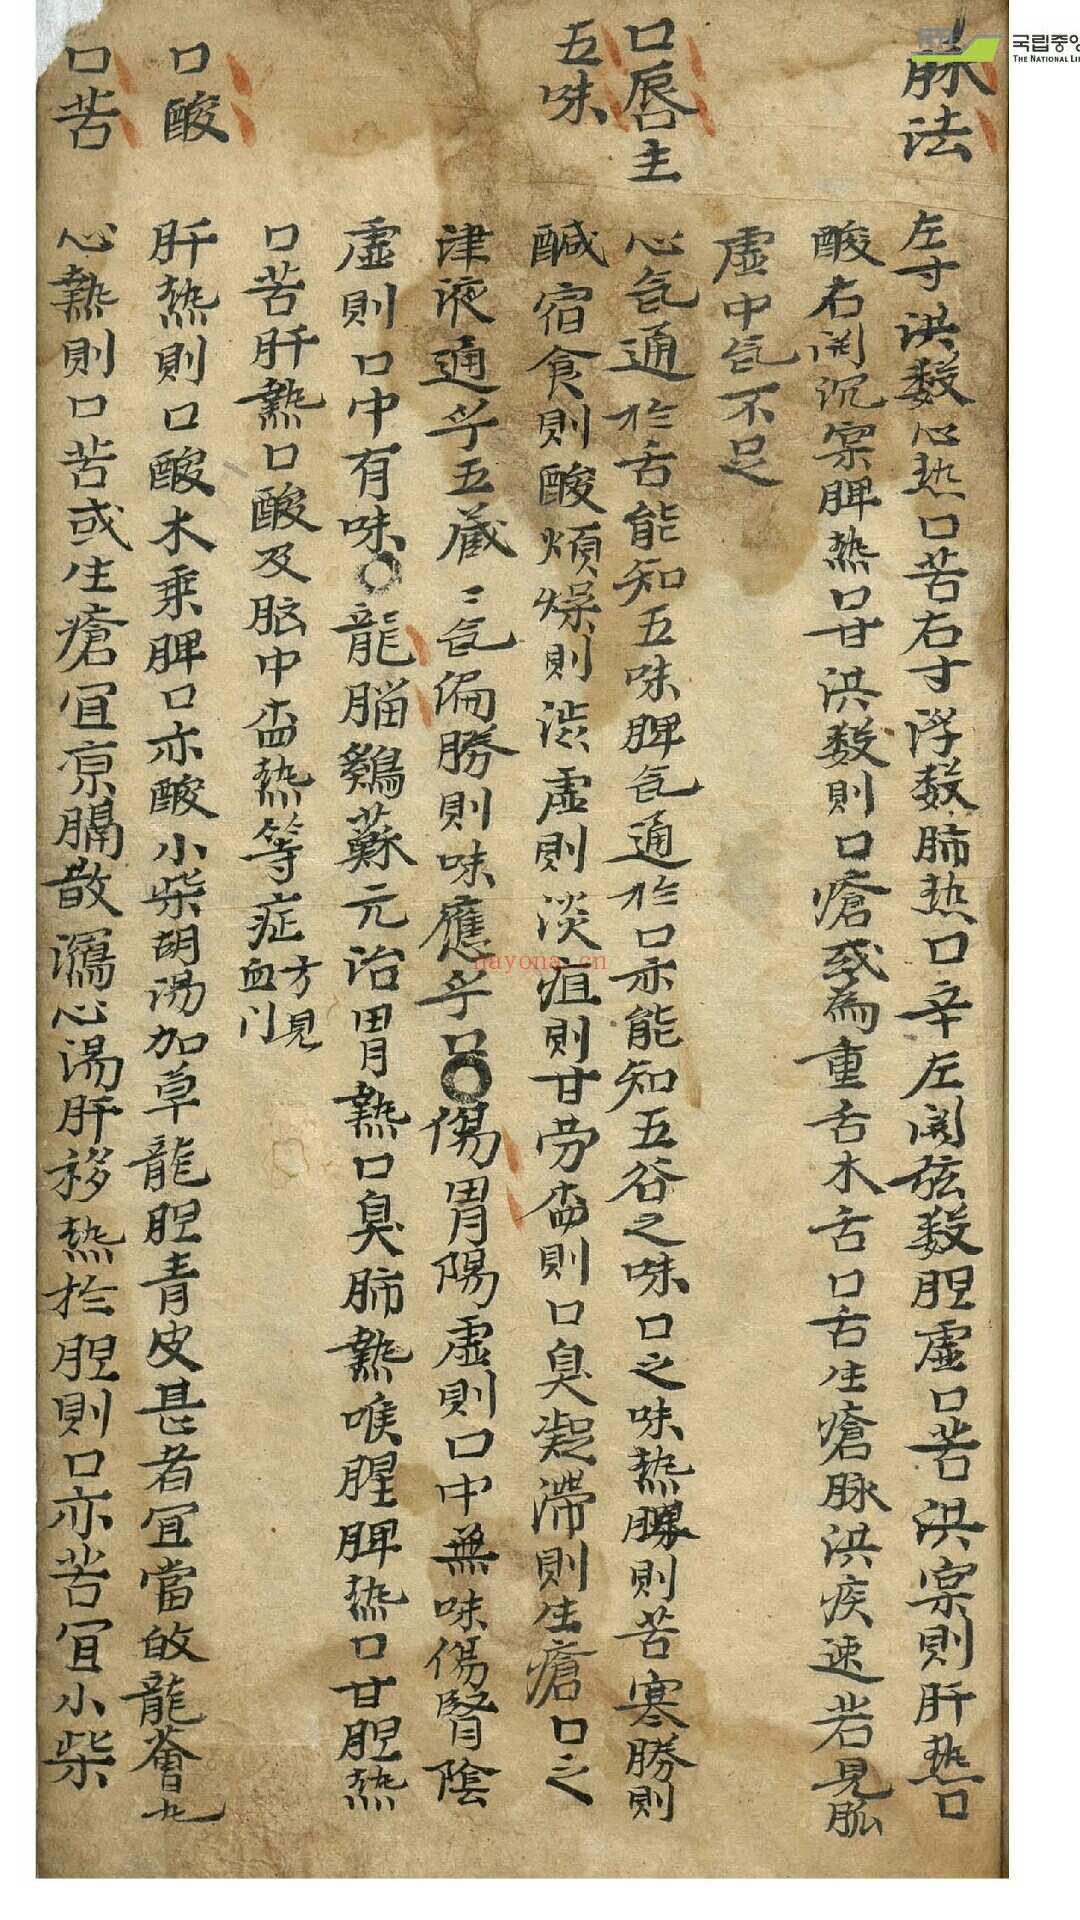 脉法
左寸洪数心热口苦右寸浮数肺热口辛左関弦数胆虚口苦洪宲則肝热口
酸右関沉宲脾热口甘洪数則口瘡或為重舌木舌口舌生瘡脉洪疾速若見脉
虚中気不足
口唇主
五味
心気通於舌能知五味脾気通於口亦能知五谷之味口之味热勝則苦寒勝則
醎宿食則酸煩燥則渋虚則淡疸則甘劳欝則口臭凝滞則生瘡口之
津液通乎五蔵〻気偏勝則味應乎口○傷胃陽虚則口中無味傷腎陰
虚則口中有味○龍腦鷄蘇元治胃熱口臭肺熱喉腥脾热口甘胆热
口苦肝熱口酸及脳中欝热等症方見
血门
口酸
肝热則口酸木乗脾口亦酸小柴胡湯加草龍胆青皮甚者宜當皈龍薈丸
口苦
心熱則口苦或生瘡宜凉膈散瀉心湯肝移热於胆則口亦苦宜小柴
国립중앙
THE NATIONAL LI
nayona.cn